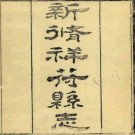 新修祥符縣志